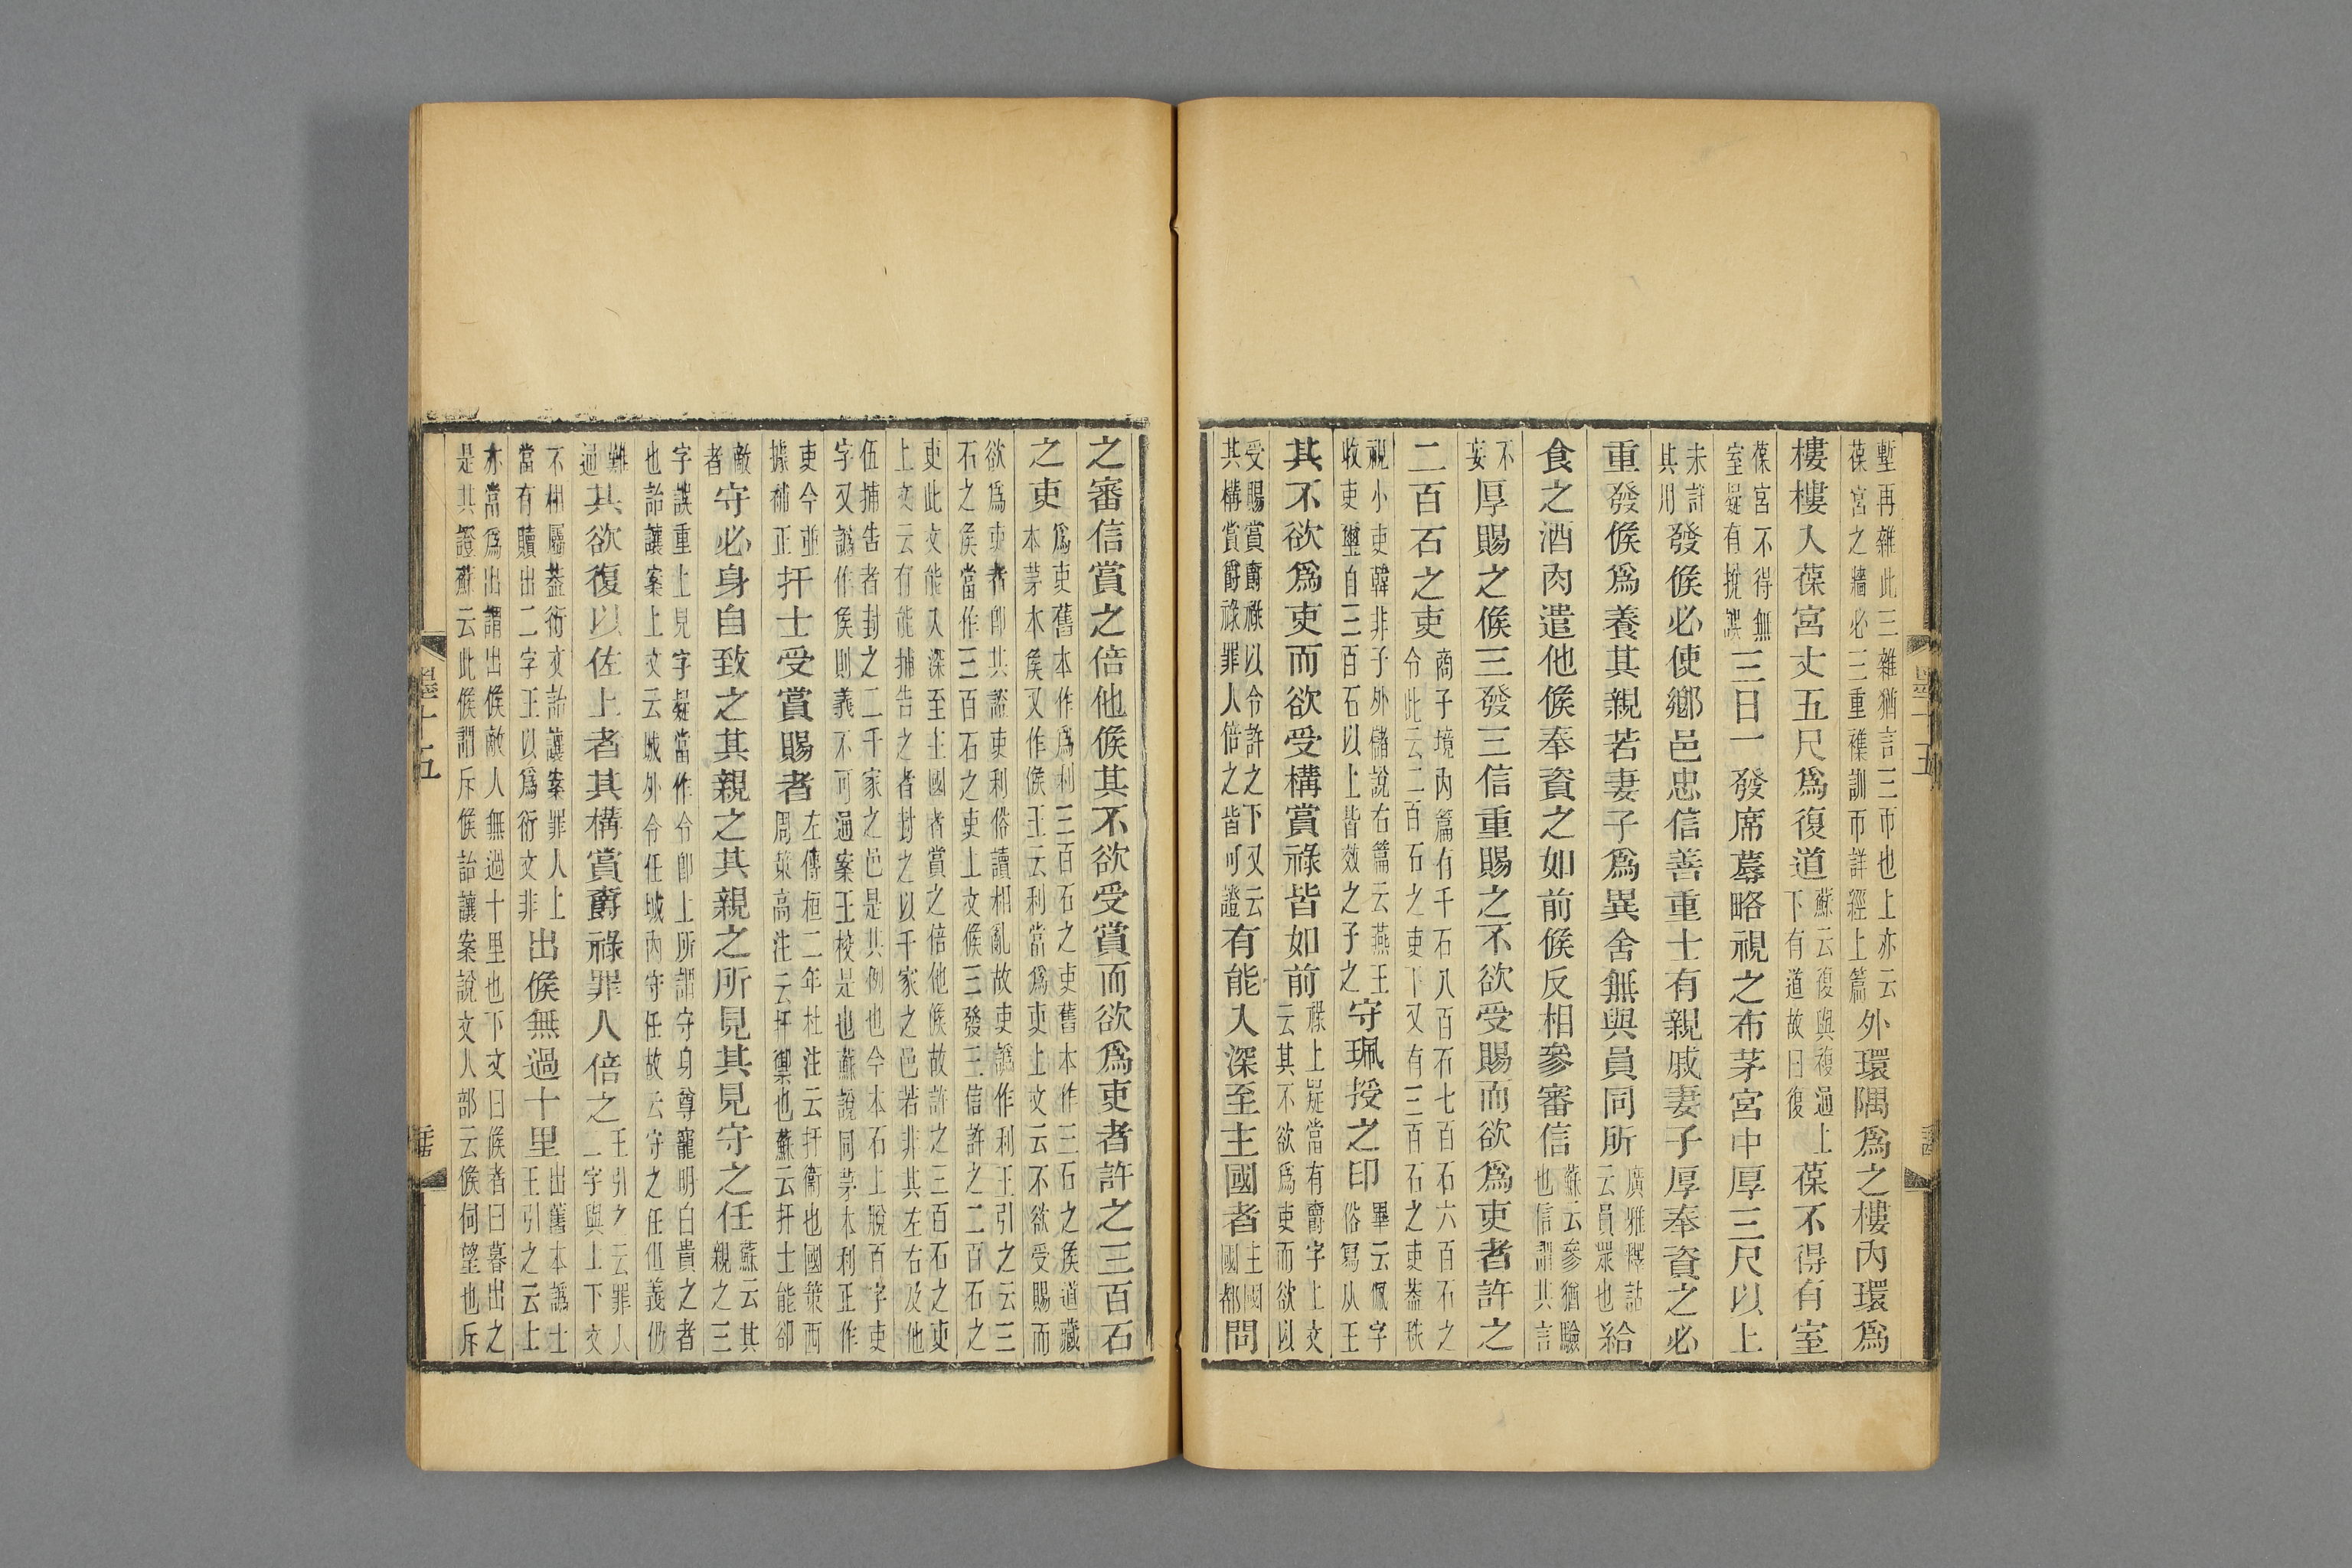 塹再雜此三雜猶言三帀也上亦云
葆宮之牆必三重襍訓帀詳經上篇外環隅爲之樓內環爲
樓樓入葆宮丈五尺爲復道蘇云復與複通上
下有道故曰復葆不得有室
葆宮不得無
室疑有挩誤三日一發席蓐略視之布茅宮中厚三尺以上
未詳
其用發候必使鄉邑忠信善重士有親戚妻子厚奉資之必
重發候爲養其親若妻子爲異舍無與員同所廣雅釋詁
云員眾也給
食之酒肉遣他候奉資之如前候反相參審信蘇云參猶驗
也信謂其言
不
妄厚賜之候三發三信重賜之不欲受賜而欲爲吏者許之
二百石之吏商子境內篇有千石八百石七百石六百石之
令此云二百石之吏下又有三百石之吏蓋秩
視小吏韓非子外儲說右篇云燕王
收吏璽自三百石以上皆效之子之守珮授之印畢云佩字
俗寫从王
其不欲爲吏而欲受構賞祿皆如前祿上疑當有爵字上文
云其不欲爲吏而欲以
受賜賞爵祿以令許之下又云
其構賞爵祿罪人倍之皆可證有能入深至主國者主國
國都問
之審信賞之倍他候其不欲受賞而欲爲吏者許之三百石
之吏爲吏舊本作爲利三百石之吏舊本作三石之侯道藏
本茅本侯又作候王云利當爲吏上文云不欲受賜而
欲爲吏者卽其證吏利俗讀相亂故吏譌作利王引之云三
石之侯當作三百石之吏上文候三發三信許之二百石之
吏此文能入深至主國者賞之倍他候故許之三百石之吏
上文云有能捕告之者封之以千家之邑若非其左右及他
伍捕告者封之二千家之邑是其例也今本石上脫百字吏
字又譌作侯則義不可通案王校是也蘇說同茅本利正作
吏今並
據補正扞士受賞賜者左傳桓二年杜注云扞衞也國策西
周策高注云扞禦也蘇云扞士能卻
敵
者守必身自致之其親之其親之所見其見守之任蘇云其
親之三
字誤重上見字疑當作令卽上所謂守身尊寵明白貴之者
也詒讓案上文云城外令任城內守任故云守之任但義仍
難
通其欲復以佐上者其構賞爵祿罪人倍之王引之云罪人
二字與上下文
不相屬蓋衍文詒讓案罪人上
當有贖出二字王以爲衍文非出候無過十里出舊本譌士
王引之云上
亦當爲出謂出候敵人無過十里也下文曰候者曰暮出之
是其證蘇云此候謂斥候詒讓案說文人部云候伺望也斥
墨十五